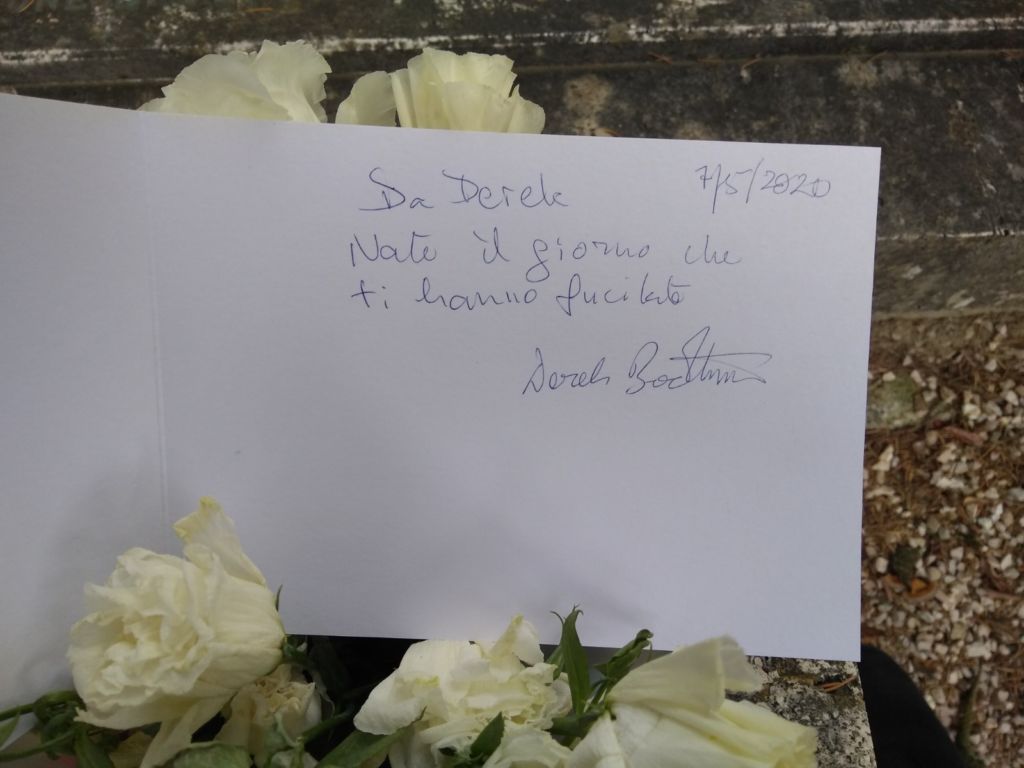 Da Derek
7/5/2020
Nato il giorno che
ti hanno fucilato
Derek